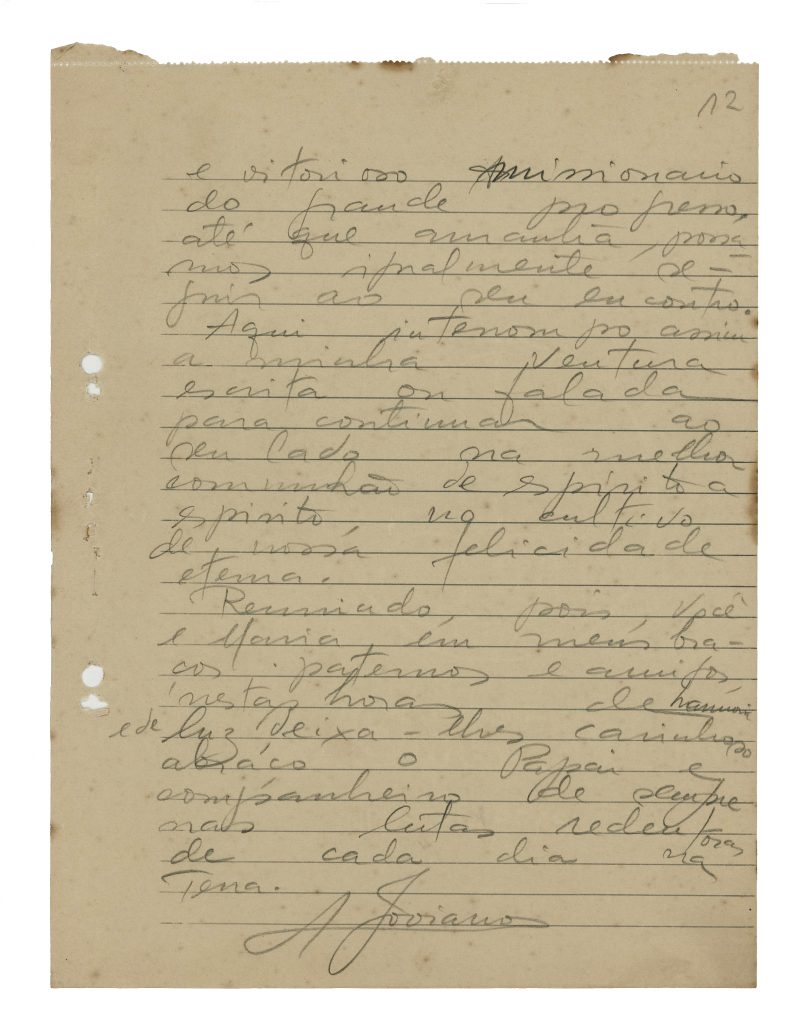 12
e vitorioso missionario
do grande progresso,
até que amanhã, possa
mos igualmente se-
guir ao seu encontro.
Aqui interrompo assim
a minha ventura
escrita ou falada
para continuar ao
seu lado na melhor
comunhão de espirito a
espirito, no cultivo
de nossa felicidade
eterna.
Reunindo, pois, você
e Maria, em meus bra-
ços paternos e amigos,
nestas horas de harmonia
e de luz deixa-lhes carinhoso
abraço o Papai e
companheiro de sempre
nas lutas redentoras
de cada dia na
Terra.
A Joviano